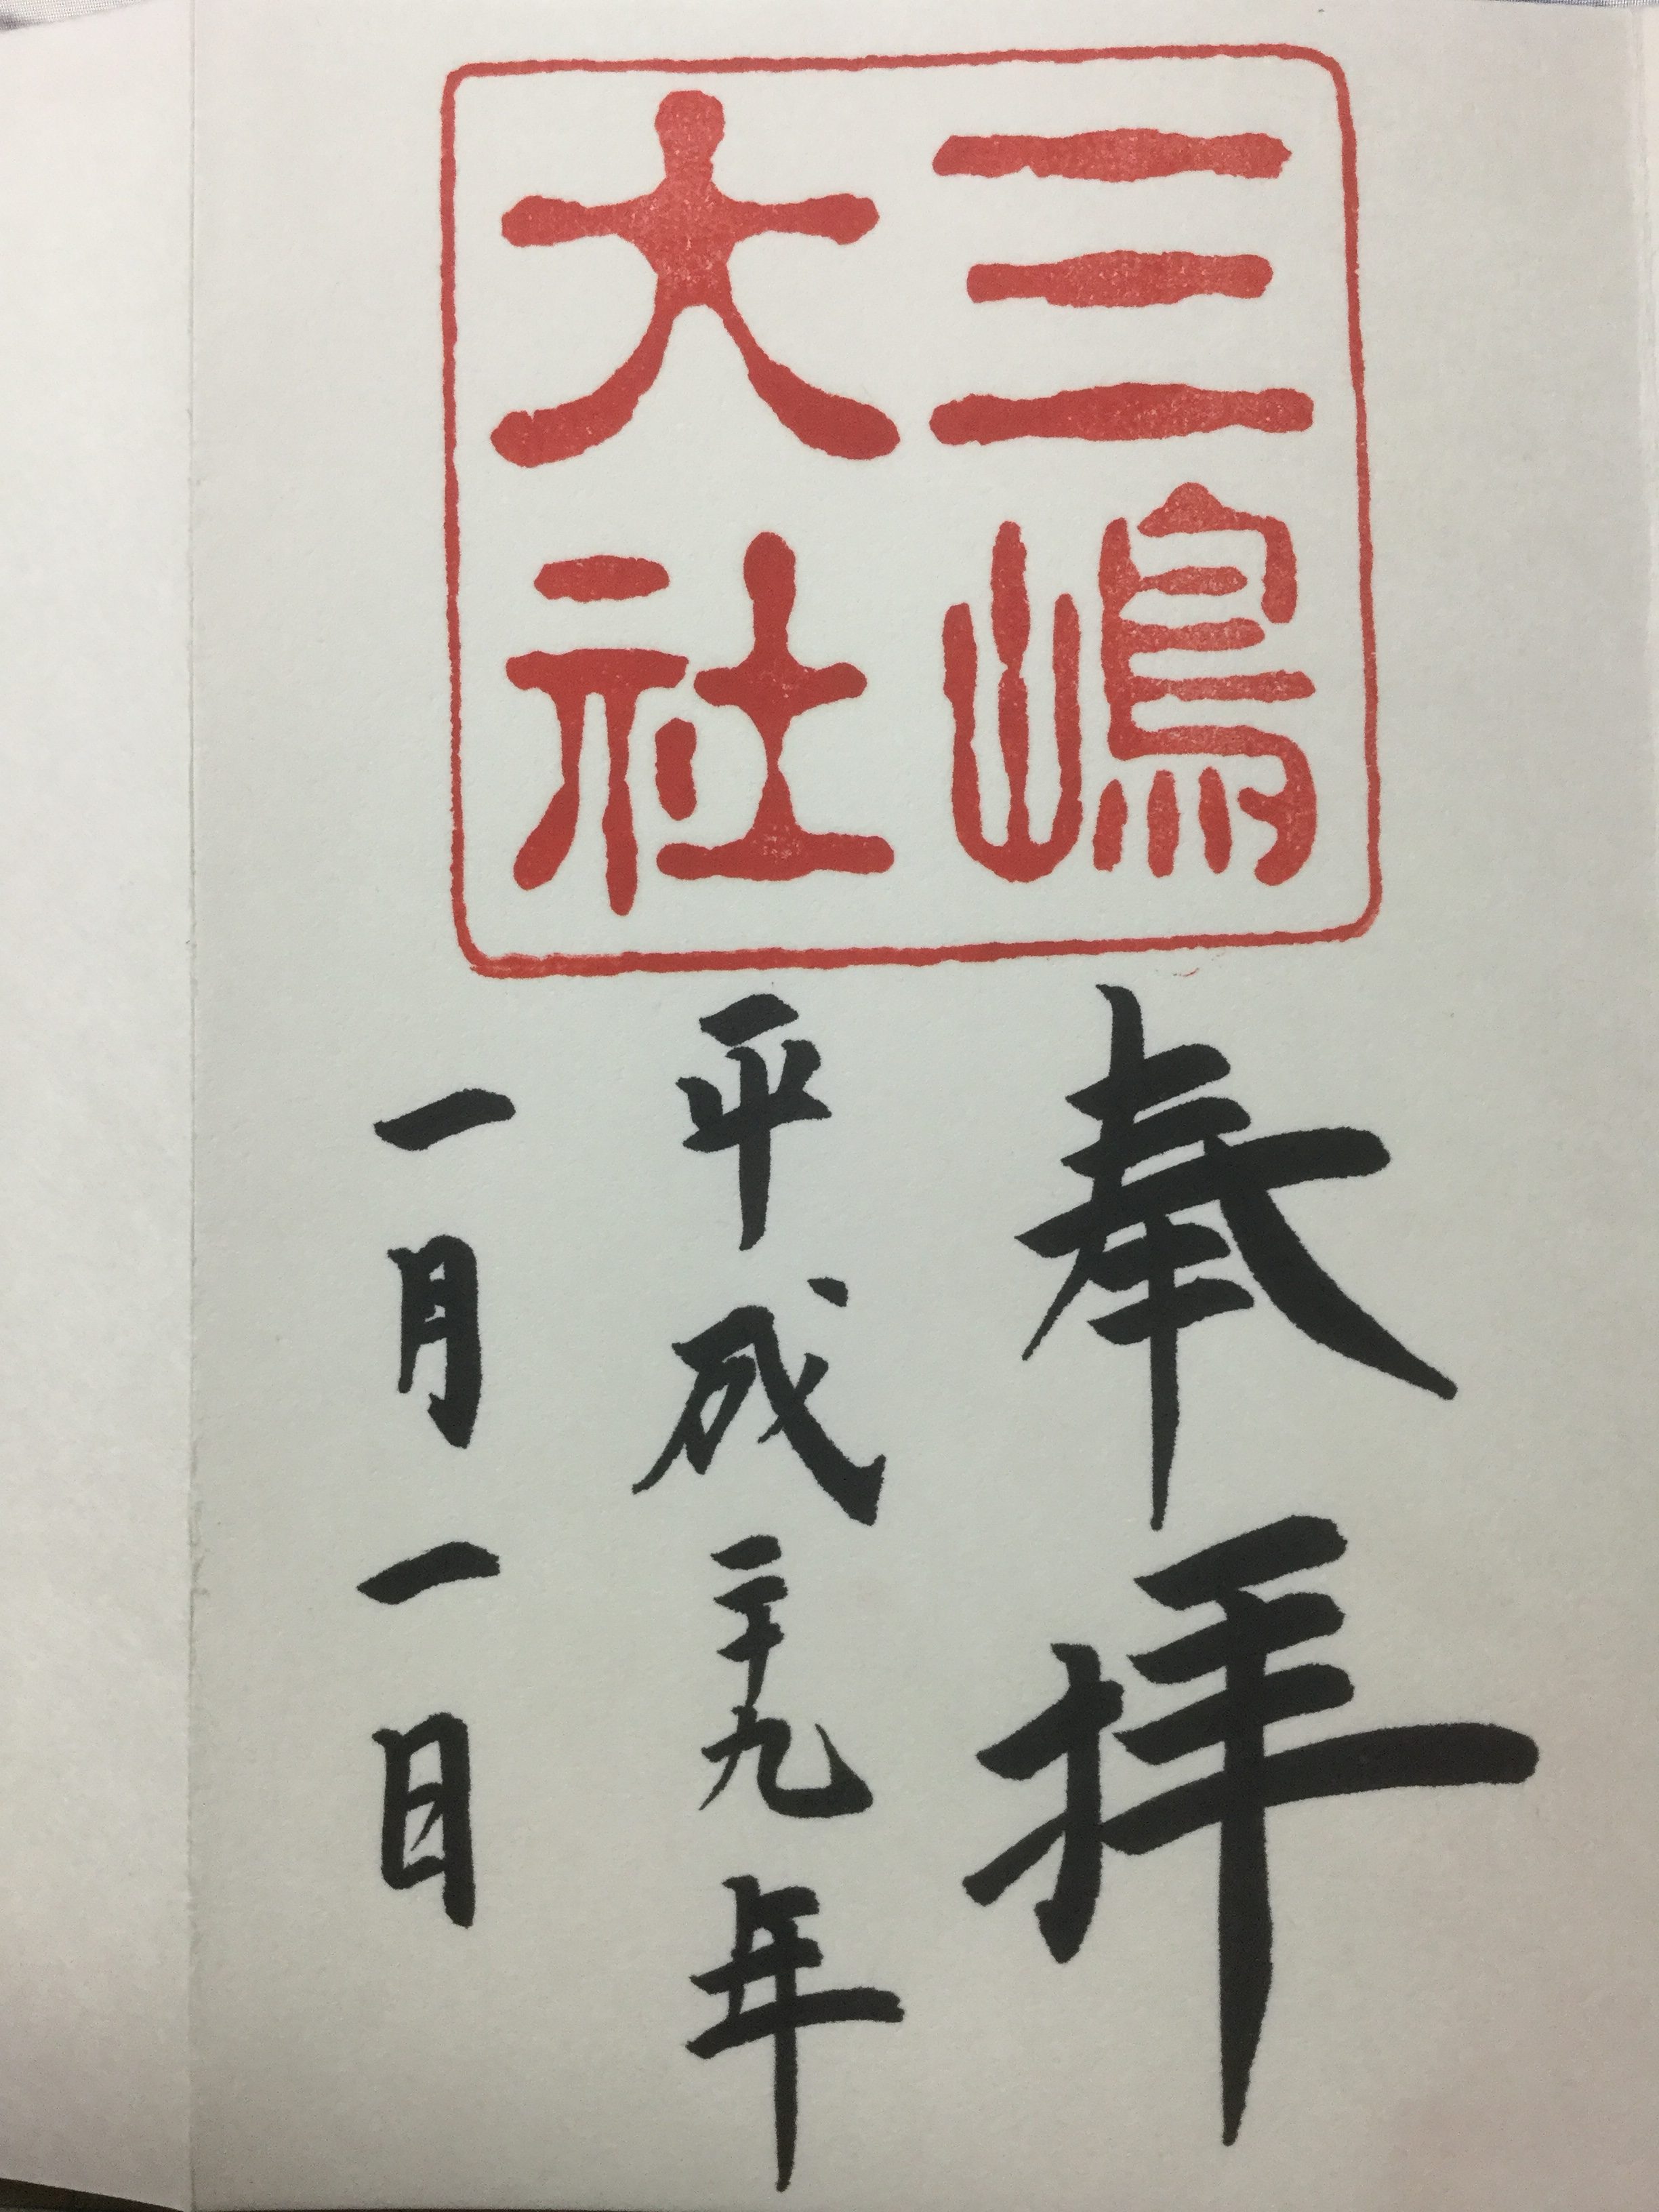 三嶋
大社
奉拝
平成二十九年
一月一日